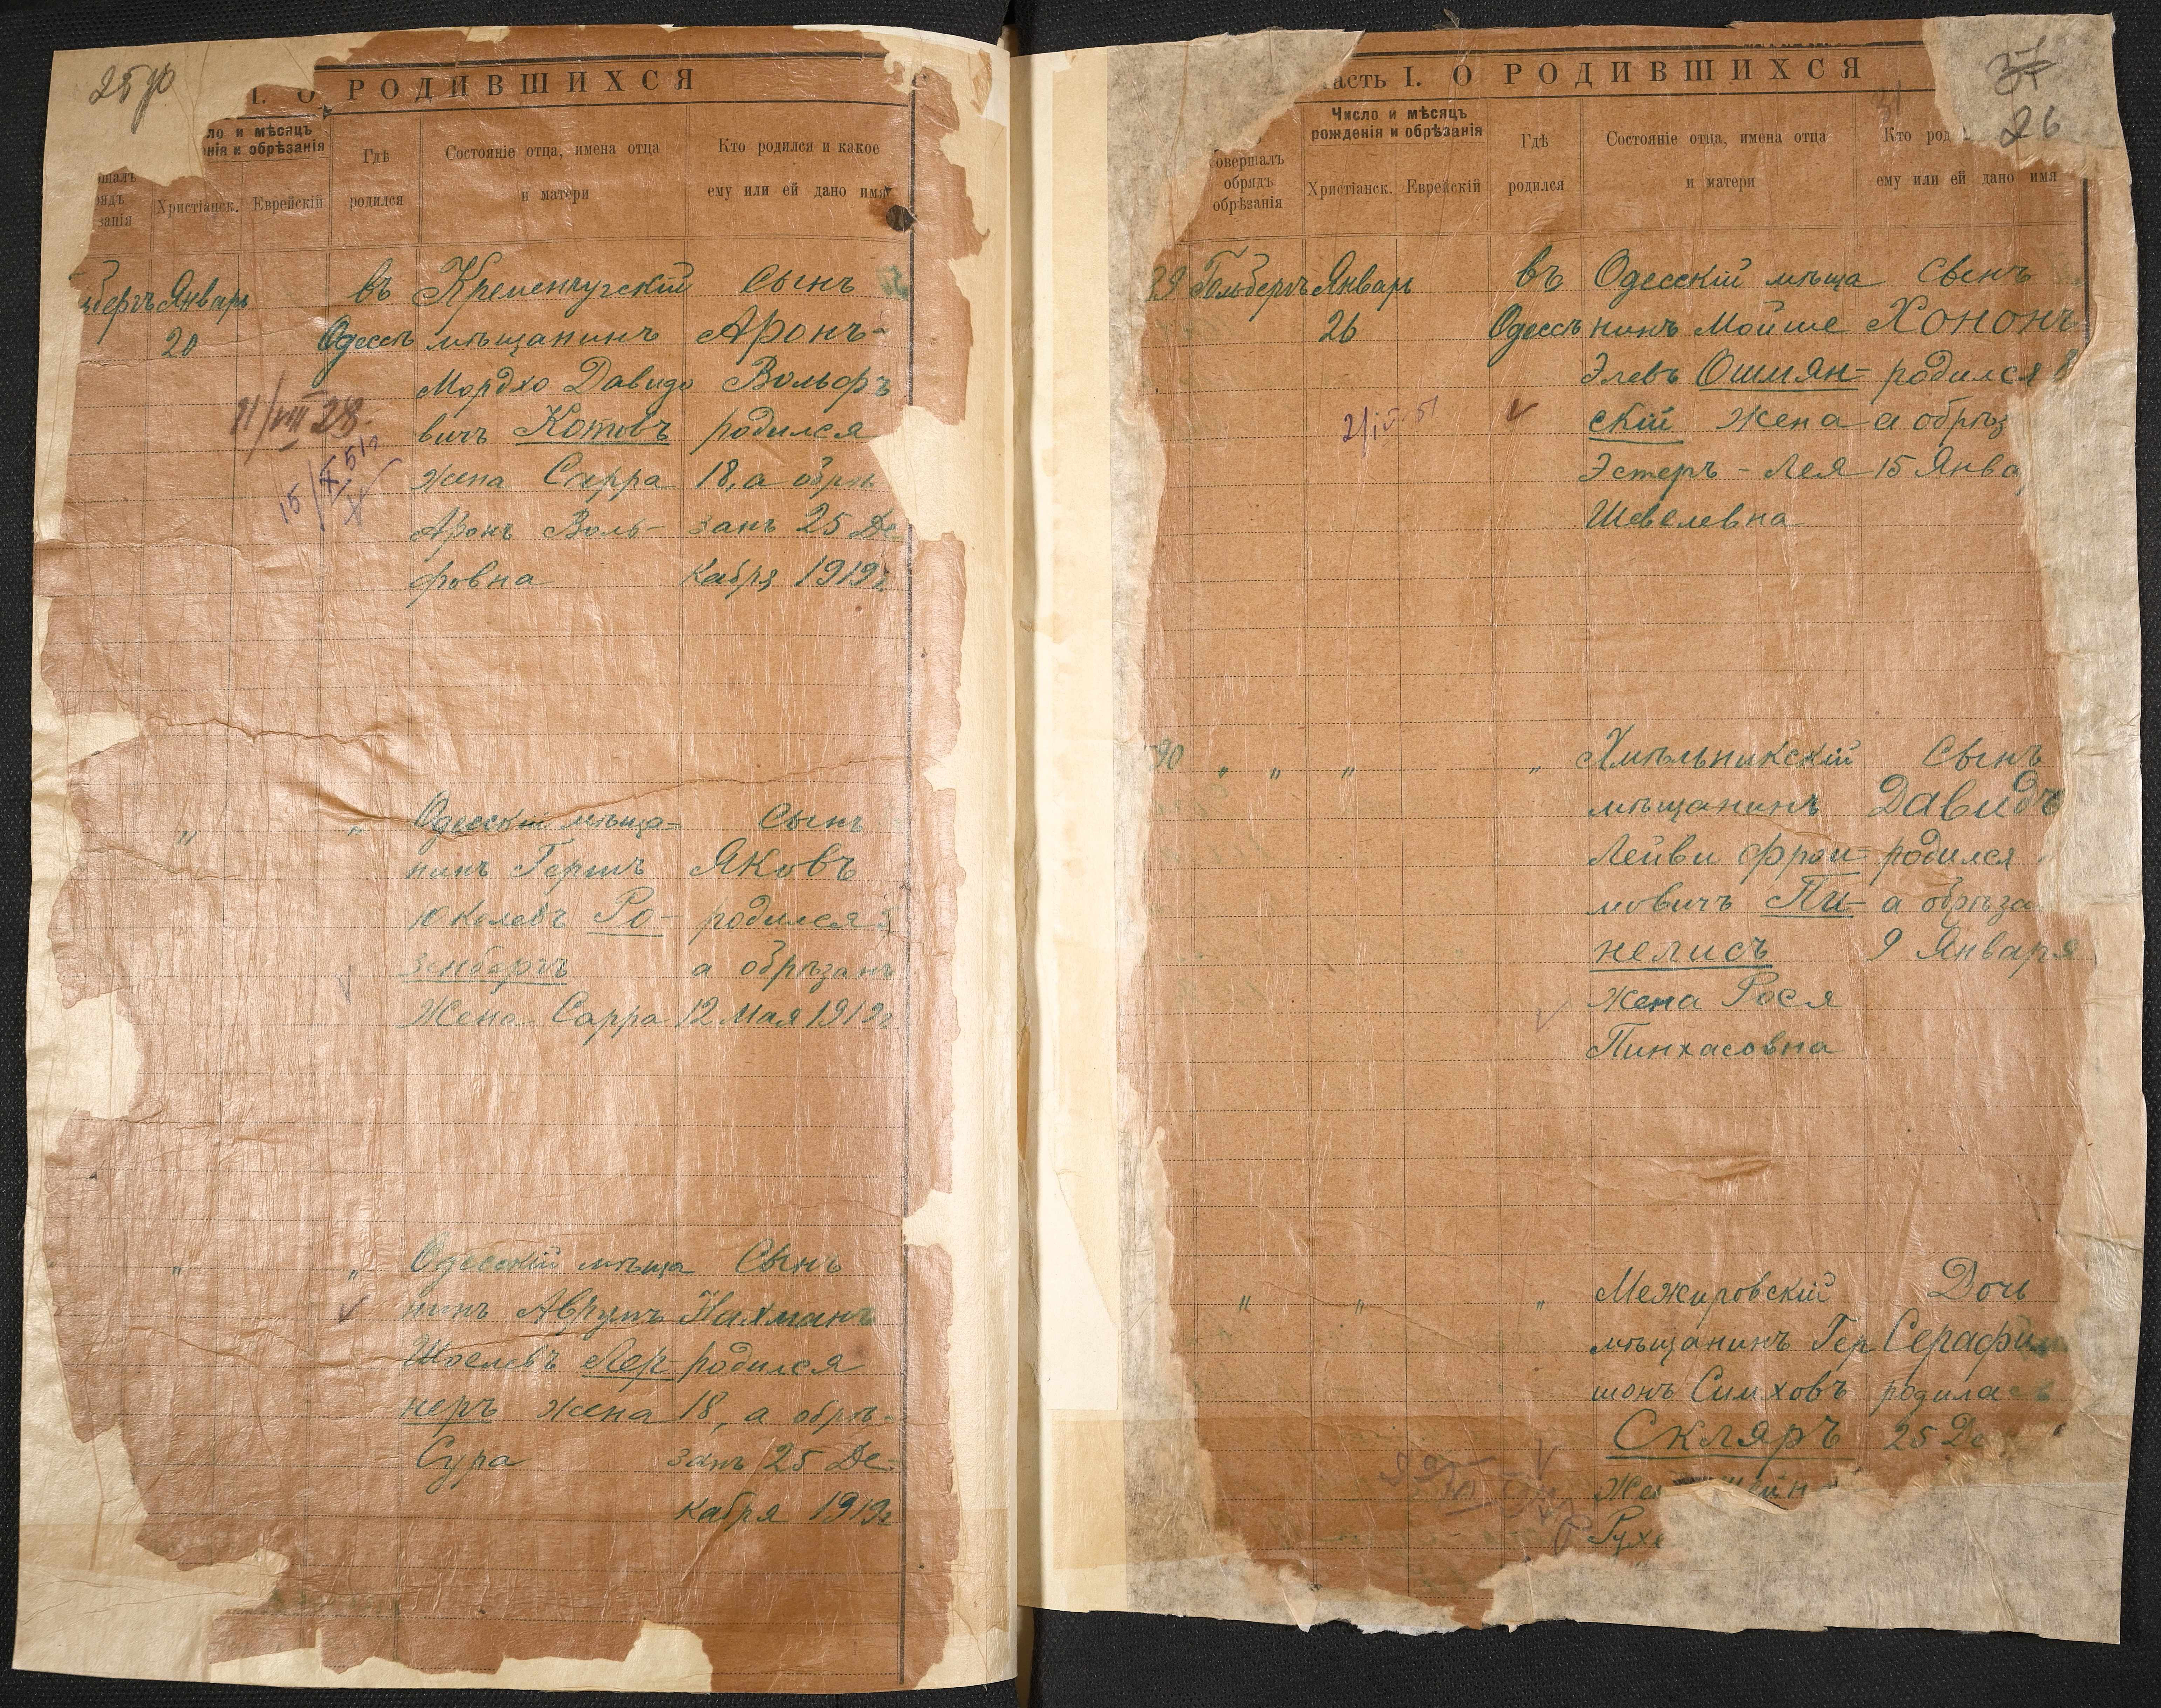 25
I. О РОДИВШИХСЯ
ло и мѣсяцъ
нія и обрѣзанія
Христіанск.
Еврейскій
Гдѣ
родился
Состояніе отца, имена отца
и матери
Кто родился и какое
ему или ей дано имя
бергъ Январь
20
въ
Одессѣ
Кременчугскій
мѣщанинъ
Мордхо Давидо
вичъ Котовъ
жена Сарра
Аронъ Воль-
фовна
Сынъ
Аронъ-
Вольфъ
родился
18, а обрѣ
занъ 25 Де
кабря 1919г
21/VIII 28.
" "
Одесскій мѣща-
нинъ Гершъ
Юкелевъ Ро-
зенбергъ
Жена Сарра
Сынъ
Яковъ
родился
а обрѣзанъ
12 Мая 1919г
" "
Одесскій мѣща
нинъ Аврумъ
Шоелевъ Лер-
неръ жена
Сура
Сынъ
Нахманъ
родился
18, а обрѣ-
занъ 25 Де-
кабря 1919г
26
асть I. О РОДИВШИХСЯ
овершалъ
обрядъ
обрѣзанія
Число и мѣсяцъ
рожденія и обрѣзанія
Христіанск.
Еврейскій
Гдѣ
родился
Состояніе отца, имена отца
и матери
Кто род
ему или ей дано имя
Гольбергъ Январь
26
въ
Одессѣ
Одесскій мѣща
нинъ Мойше
Элевъ Ошмян=
скій Жена
Эстеръ-Лея
Шевелевна
Сынъ
Хононъ
родился 8
а обрѣз
15 Янва
90 " " " "
Хмѣльникскій
мѣщанинъ
Лейви Фрои=
мовичъ Пи=
нелисъ
Жена Рося
Пинхасовна
Сынъ
Давидъ
родился
а обрѣза
9 Января
" " "
Межировскій
мѣщанинъ Гер
шонъ Симховъ
Скляръ
Же
Рухе
Дочь
Серафим
родилась
25 Де